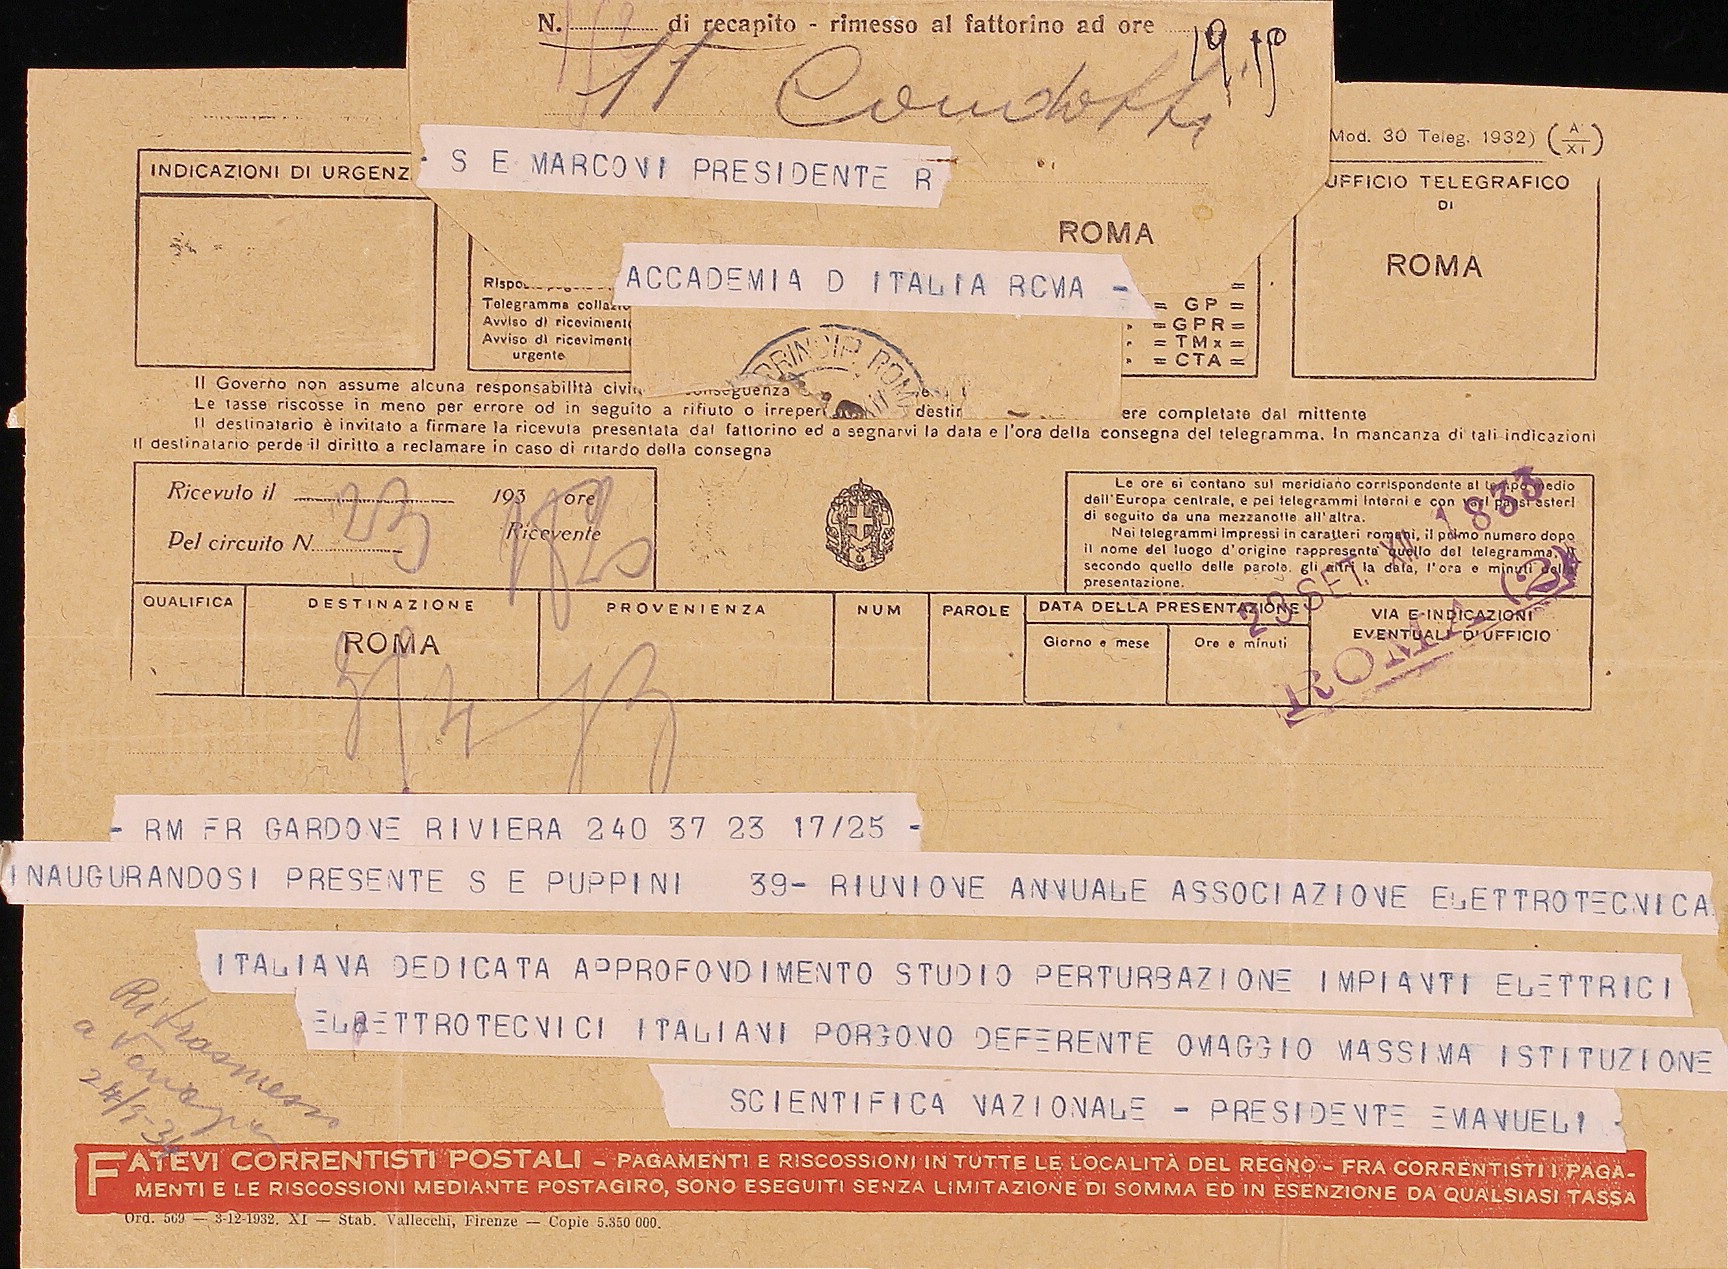 N. di recapito - rimesso al fattorino ad ore 19.15
S E MARCONI PRESIDENTE R
ROMA
ACCADEMIA D ITALIA ROMA -
(Mod. 30 Teleg. 1932) (A/XI)
INDICAZIONI DI URGENZ
UFFICIO TELEGRAFICO
DI
ROMA
Telegramma collazio
Avviso di riceviment
Avviso di ricevimento
urgente
=
= GP =
= GPR =
= TMx =
= CTA =
PRINCIP. ROMA
Il Governo non assume alcuna responsabilità civil conseguenza
Le tasse riscosse in meno per errore od in seguito a rifiuto o irreper destin ere completate dal mittente
Il destinatario è invitato a firmare la ricevuta presentata dal fattorino ed a segnarvi la data e l'ora della consegna del telegramma. In mancanza di tali indicazioni
Il destinatario perde il diritto a reclamare in caso di ritardo della consegna
Ricevuto il 23 193 ore
Pel circuito N. Ricevente
Le ore si contano sul meridiano corrispondente al tempo medio
dell'Europa centrale, e pei telegrammi interni e con vari paesi esteri
di seguito da una mezzanotte all'altra.
Nei telegrammi impressi in caratteri romani, il primo numero dopo
il nome del luogo d'origine rappresenta quello del telegramma, il
secondo quello delle parole, gli altri la data, l'ora e minuti della
presentazione.
23 SET. XII 1833
ROMA (2)
QUALIFICA DESTINAZIONE PROVENIENZA NUM PAROLE DATA DELLA PRESENTAZIONE VIA E INDICAZIONI
EVENTUALI D'UFFICIO
ROMA Giorno e mese Ore e minuti
- RM FR GARDONE RIVIERA 240 37 23 17/25 -
INAUGURANDOSI PRESENTE S E PUPPINI 39- RIUNIONE ANNUALE ASSOCIAZIONE ELETTROTECNICA
ITALIANA DEDICATA APPROFONDIMENTO STUDIO PERTURBAZIONE IMPIANTI ELETTRICI
ELETTROTECNICI ITALIANI PORGONO DEFERENTE OMAGGIO MASSIMA ISTITUZIONE
SCIENTIFICA NAZIONALE - PRESIDENTE EMANUELI -
Ritrasmesso
a
24/9-34
FATEVI CORRENTISTI POSTALI - PAGAMENTI E RISCOSSIONI IN TUTTE LE LOCALITÀ DEL REGNO - FRA CORRENTISTI I PAGA-
MENTI E LE RISCOSSIONI MEDIANTE POSTAGIRO, SONO ESEGUITI SENZA LIMITAZIONE DI SOMMA ED IN ESENZIONE DA QUALSIASI TASSA
Ord. 569 — 3-12-1932. XI — Stab. Vallecchi, Firenze — Copie 5.350 000.